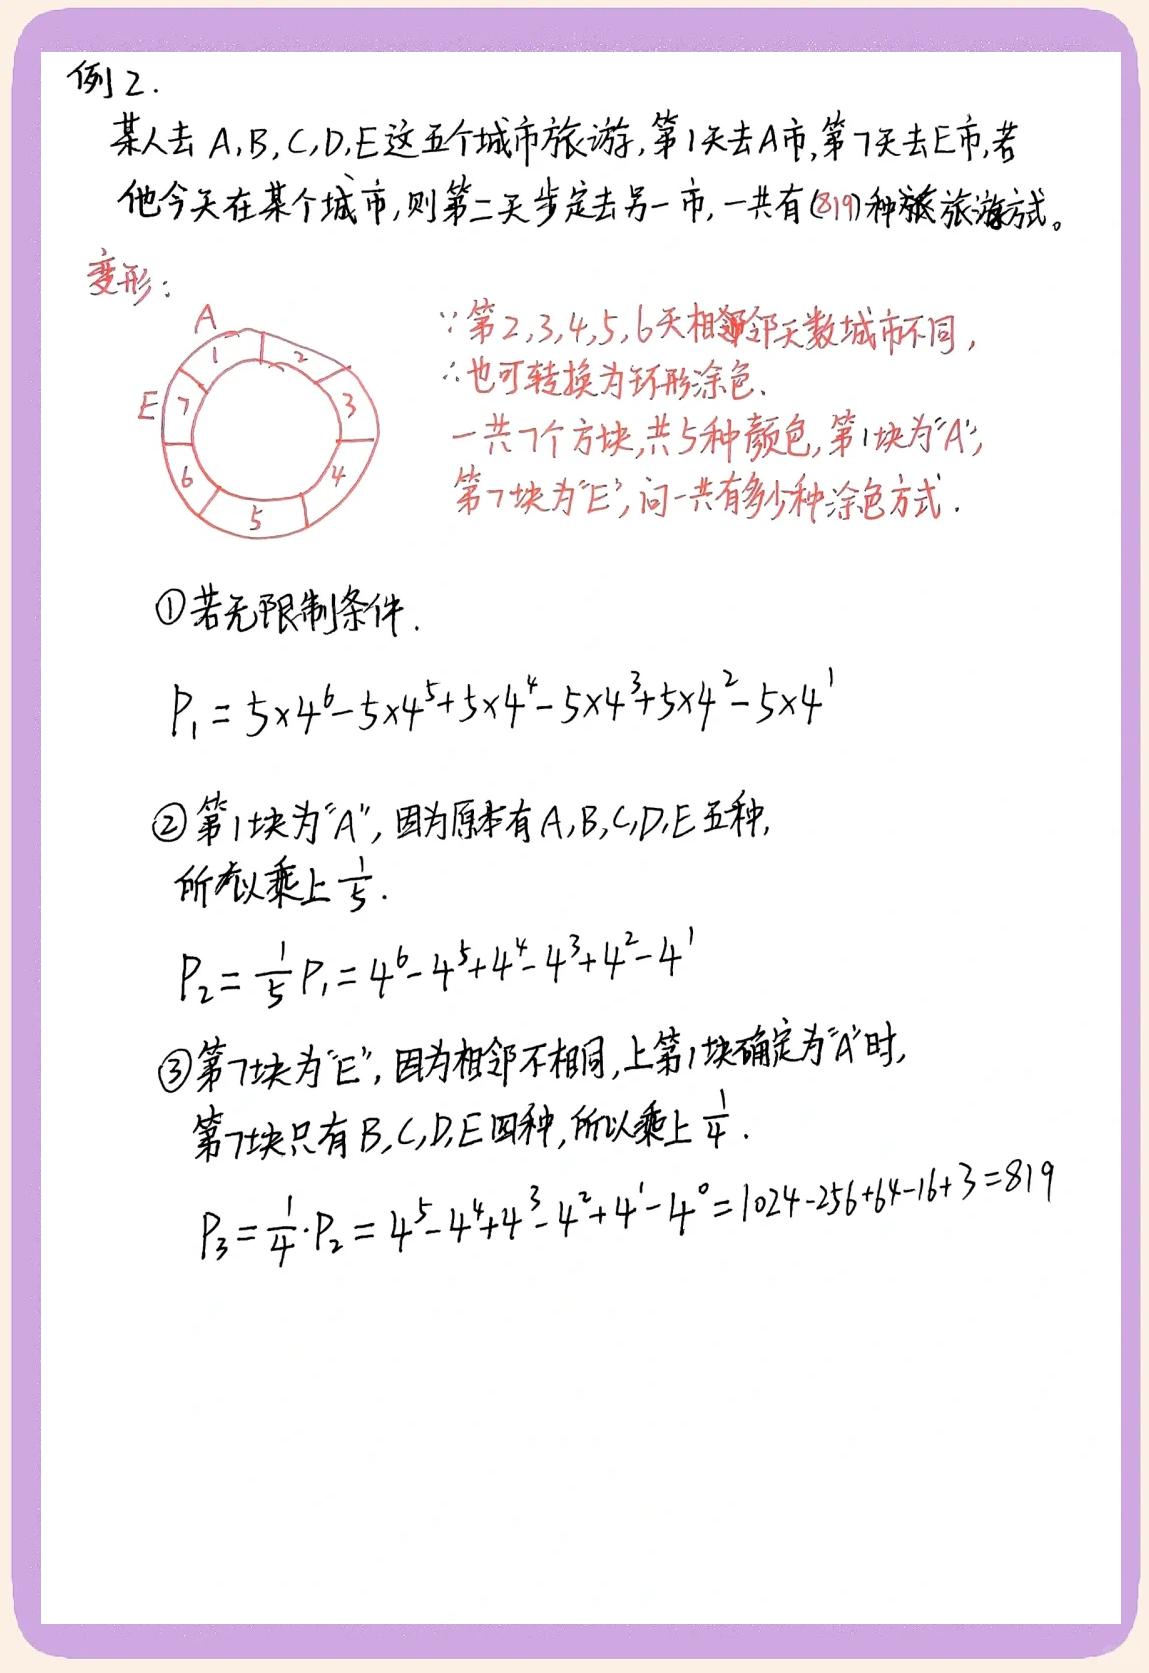 例2.
某人去A,B,C,D,E这五个城市旅游,第1天去A市,第7天去E市,若
他今天在某个城市,则第二天步定去另一市,一共有(819)种旅游方式。
变形:
A
1
2
E
7
3
6
4
5
∵第2,3,4,5,6天相邻天数城市不同,
∴也可转换为环形涂色.
一共7个方块,共5种颜色,第1块为"A",
第7块为"E",问一共有多少种涂色方式.
①若无限制条件.
P₁=5×4⁶-5×4⁵+5×4⁴-5×4³+5×4²-5×4¹
②第1块为"A",因为原本有A,B,C,D,E五种,
所以乘上1/5.
P₂=1/5P₁=4⁶-4⁵+4⁴-4³+4²-4¹
③第7块为"E",因为相邻不相同,上第1块确定为"A"时,
第7块只有B,C,D,E四种,所以乘上1/4.
P₃=1/4·P₂=4⁵-4⁴+4³-4²+4¹-4⁰=1024-256+64-16+3=819